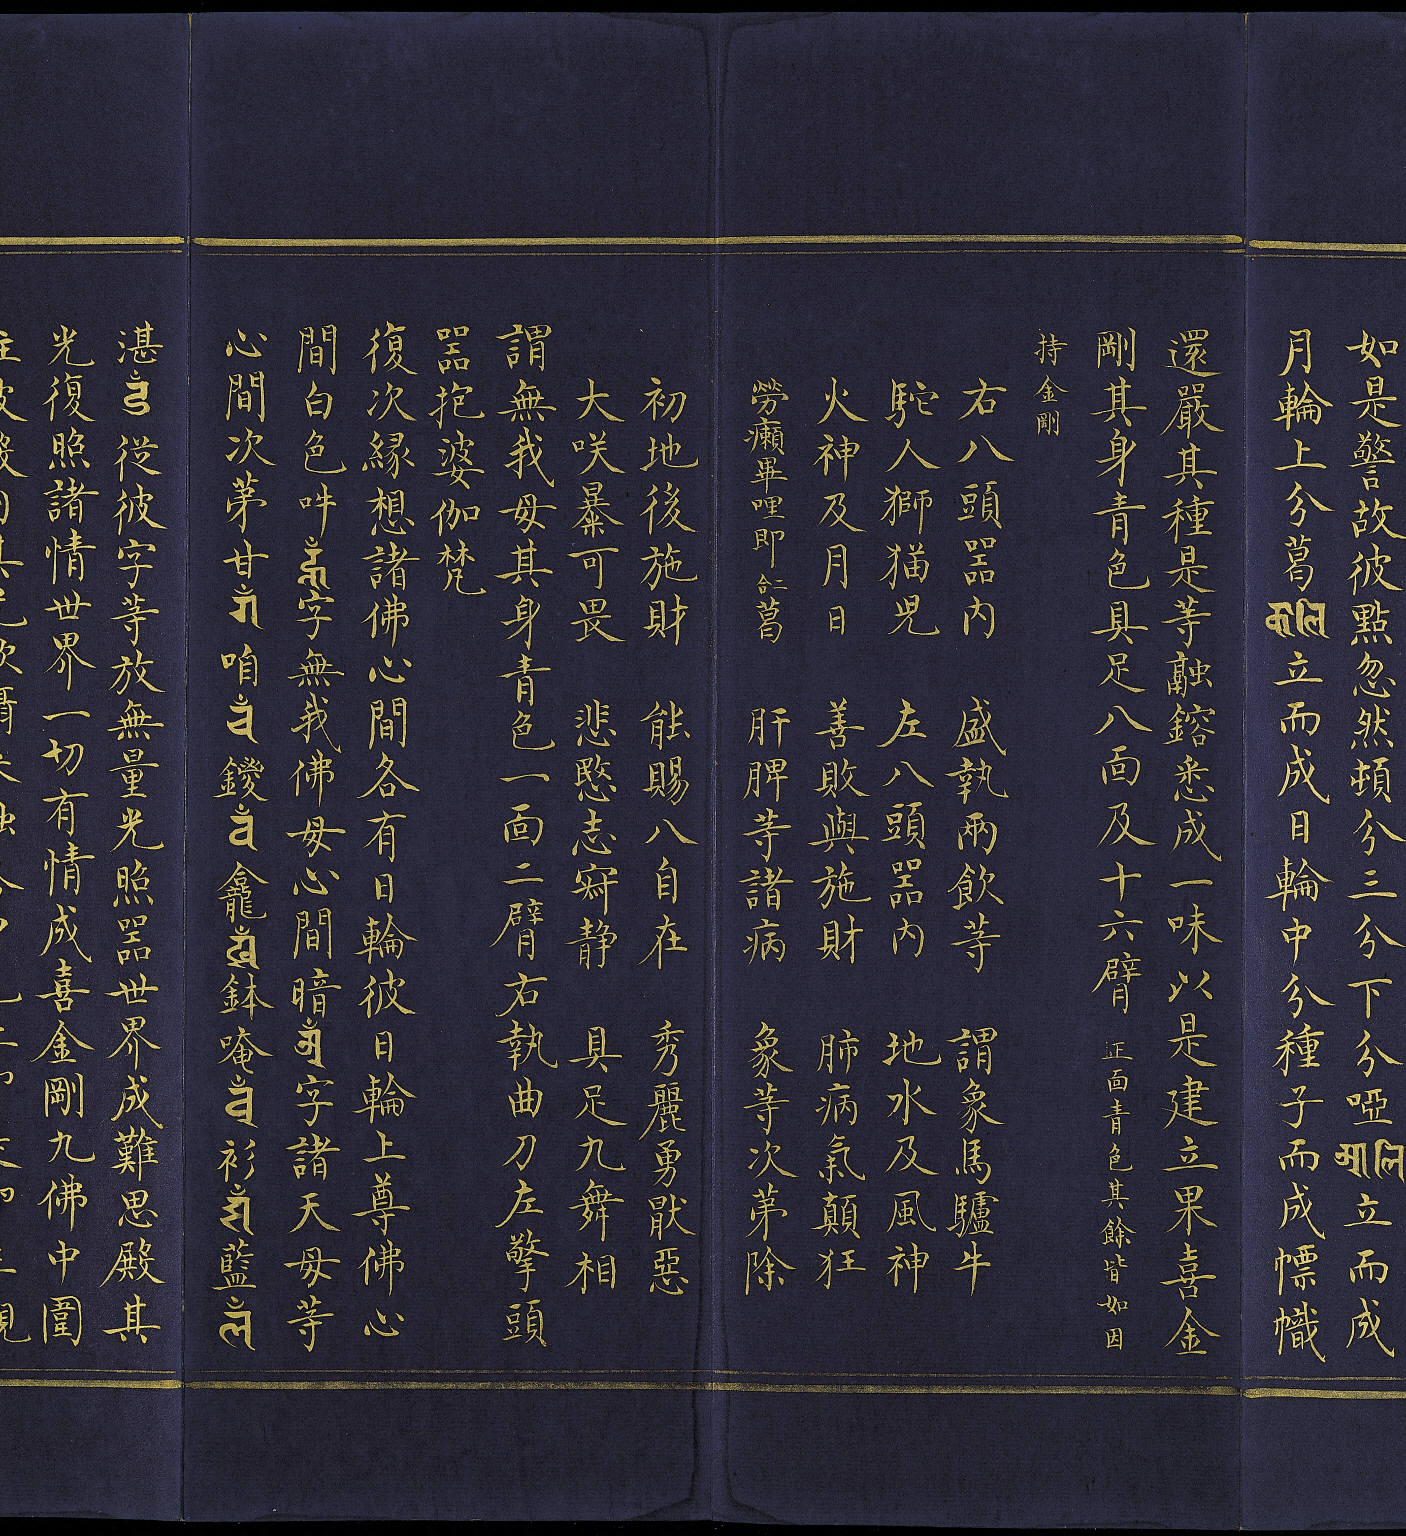 如是警故彼點忽然頓分三分下分啞आलि立而成
月輪上分葛कालि立而成日輪中分種子而成幖幟
還嚴其種是等融鎔悉成一味以是建立果喜金
剛其身青色具足八面及十六臂正面青色其餘皆如因
持金剛
右八頭器內 盛執兩飲等 謂象馬驢牛
駝人獅猫兒 左八頭器內 地水及風神
火神及月日 善敗與施財 肺病氣顛狂
勞癩畢哩即葛 肝脾等諸病 象等次第除
初地後施財 能賜八自在 秀麗勇猒惡
大咲暴可畏 悲愍志寂静 具足九舞相
謂無我母其身青色一面二臂右執曲刀左擎頭
器抱婆伽梵
復次緣想諸佛心間各有日輪彼日輪上尊佛心
間白色吽字無我佛母心間暗字諸天母等
心間次第甘咱鑁龕鉢唵衫藍
湛從彼字等放無量光照器世界成難思殿其
光復照諸情世界一切有情成喜金剛九佛中圍